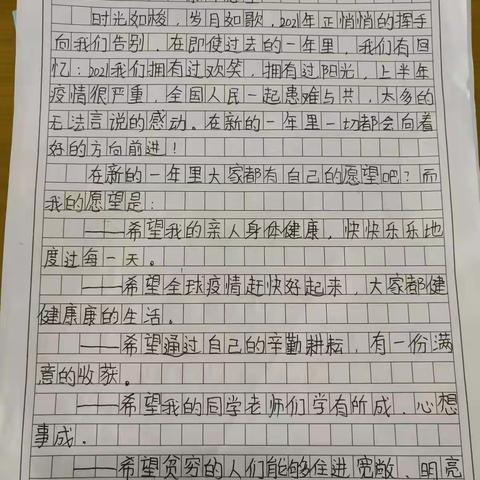 时光如梭，岁月如歌，2021年正悄悄的挥手
向我们告别，在即使过去的一年里，我们有回
忆：2021我们拥有过欢笑，拥有过阳光，上半年
疫情很严重，全国人民一起患难与共，太多的
无法言说的感动。在新的一年里一切都会向着
好的方向前进！
在新的一年里大家都有自己的愿望吧？而
我的愿望是：
——希望我的亲人身体健康，快快乐乐地
度过每一天。
——希望全球疫情赶快好起来，大家都健
健康康的生活。
——希望通过自己的辛勤耕耘，有一份满
意的收获。
——希望我的同学老师们学有所成、心想
事成。
——希望贫穷的人们能够住进宽敞、明亮